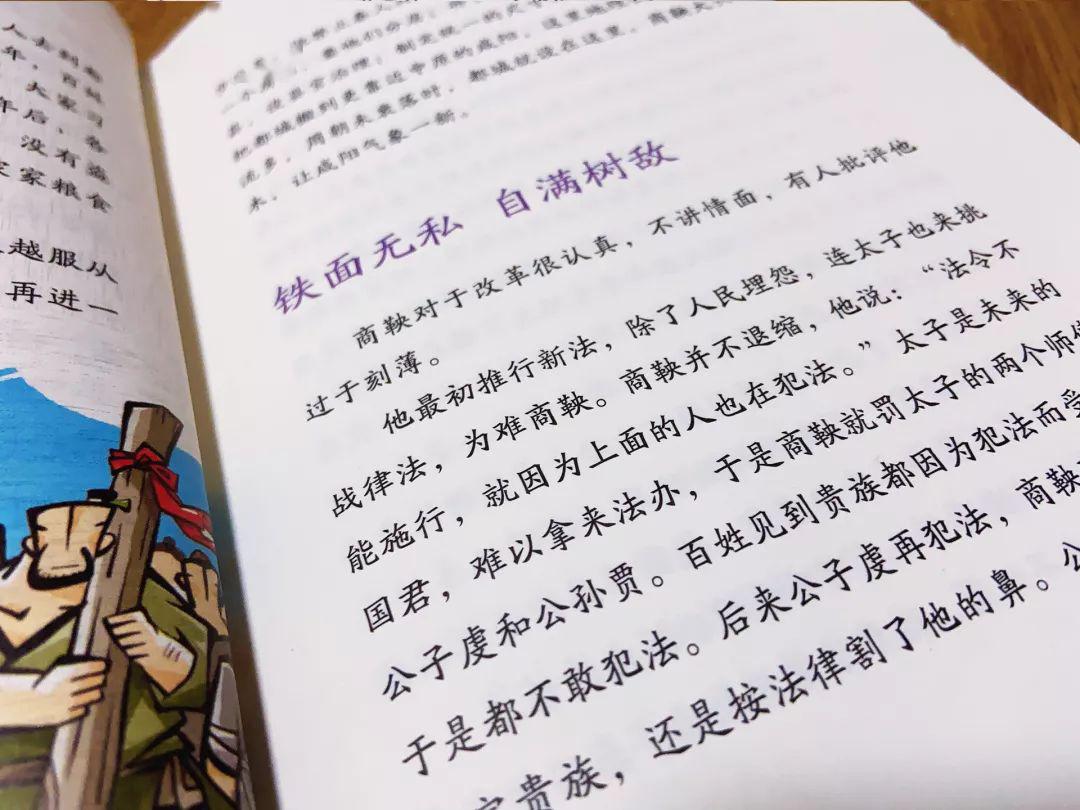 人去到
年，百
大家
年后，
没有盗
家家粮食
越服从
再进一
一个
县，设县官治理；制定统一的
把都城搬到更靠近中原的咸阳，这里地
流多，周朝未衰落时，都城就设在这里。商鞅
来，让咸阳气象一新。
铁面无私 自满树敌
商鞅对于改革很认真，不讲情面，有人批评他
过于刻薄。
他最初推行新法，除了人民埋怨，连太子也来挑
战律法，为难商鞅。商鞅并不退缩，他说：“法令不
能施行，就因为上面的人也在犯法。”太子是未来的
国君，难以拿来法办，于是商鞅就罚太子的两个师傅
公子虔和公孙贾。百姓见到贵族都因为犯法而受
于是都不敢犯法。后来公子虔再犯法，商鞅
贵族，还是按法律割了他的鼻。公